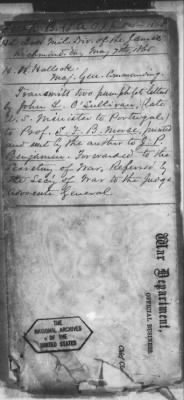 Richmond, Va, May 7th 1865
H. W. Halleck
Maj. Gen. Commanding.
Transmit two pamphlet letters
by John L. O'Sullivan, (late
U.S. Minister to Portugal)
to Prof. S. F. B. Morse, printed
and sent by the author to J. P.
Benjamin. Forwarded to the
Secretary of War, Referred by
the Secy of War to the Judge
Advocate General
War Department,
OFFICIAL BUSINESS.
THE
NATIONAL ARCHIVES
OF THE
UNITED STATES